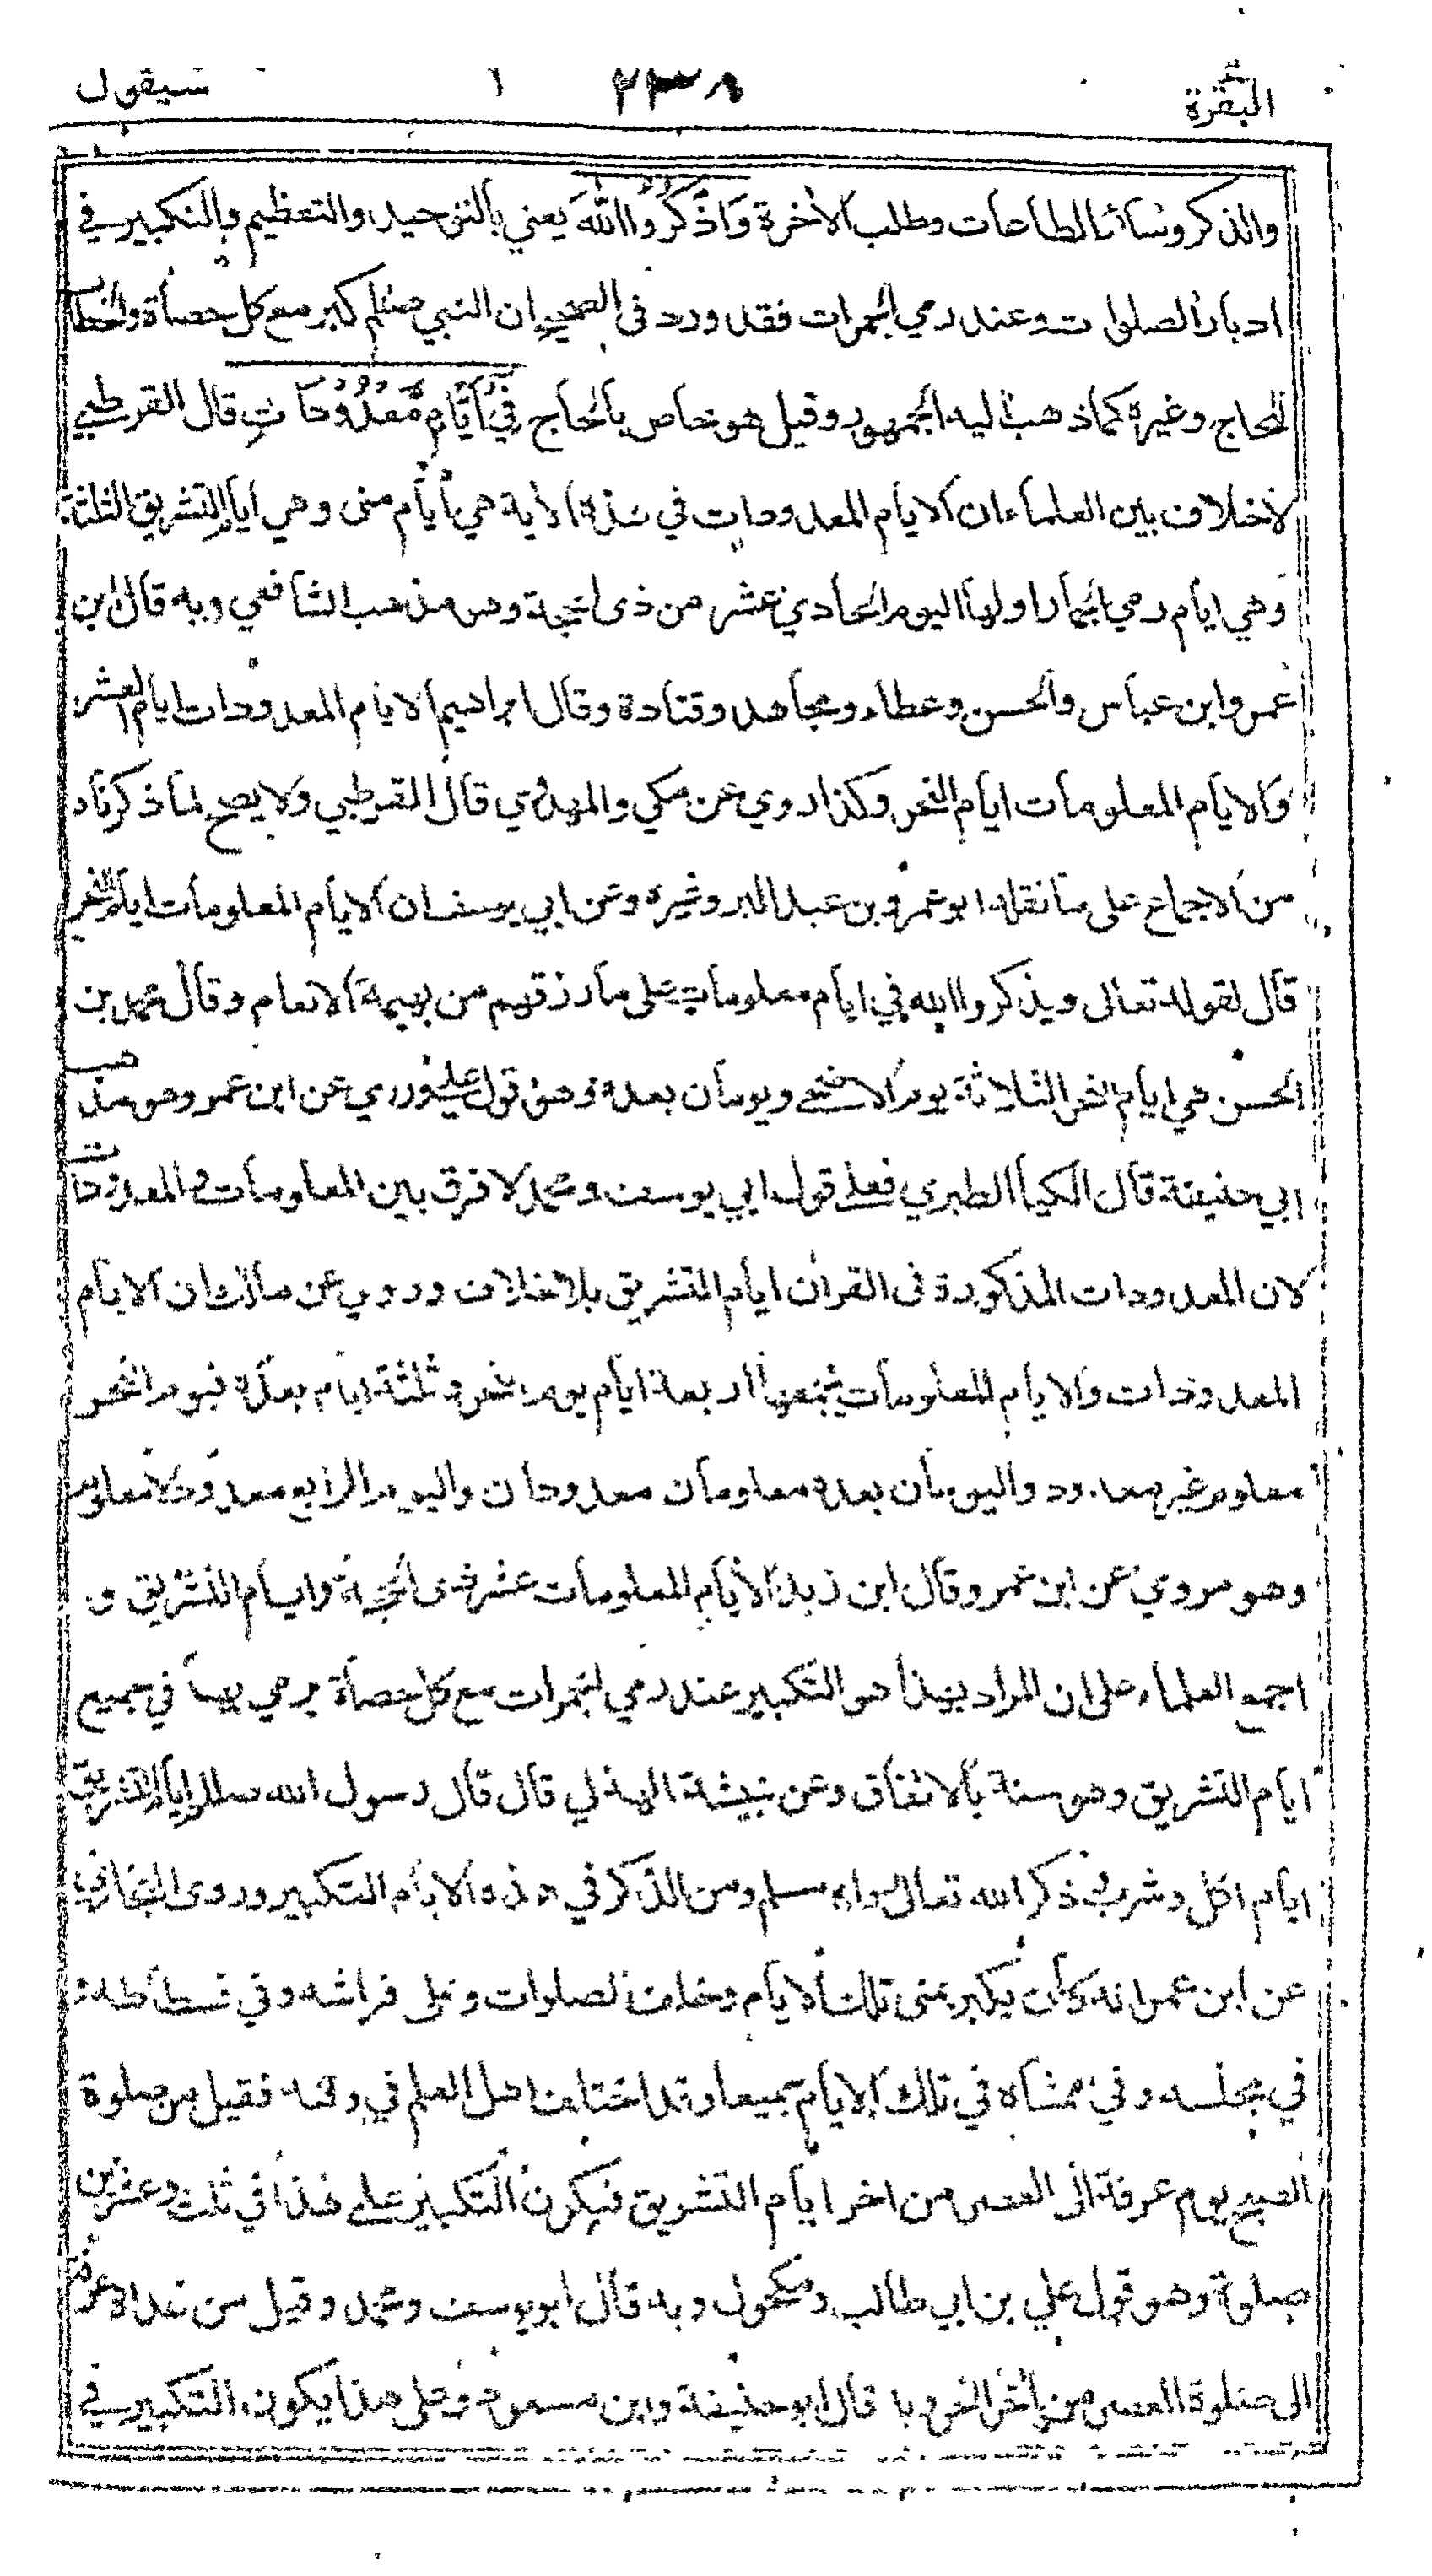 البقرة ٢٣٨ سيقول
والذكر وسائر الطاعات وطلب الأخرة وَاذْكُرُوا اللهَ يعني بالتوحيد والتعظيم والتكبير في
ادبار الصلوات وعند رمي الجمرات فقد ورد فى الصحيح ان النبي صللم كبر مع كل حصاة والخطاب
للحاج وغيره كما ذهب اليه الجمهور وقيل هو خاص بالحاج فِي أَيَّامٍ مَّعْدُوْدَاتٍ قال القرطبي
لا خلاف بين العلماء ان الايام المعدودات في هذه الأية هي أيام منى وهي ايام التشريق الثلثة
وهي ايام رمي الجمار اولها اليوم الحادي عشر من ذى الحجة وهو مذهب الشافعي وبه قال ابن
عمر وابن عباس والحسن وعطاء ومجاهد وقتادة وقال ابراهيم الايام المعدودات ايام العشر
والايام المعلومات ايام النحر وكذا روي عن مكي والمهدوي قال القرطبي ولا يصح لما ذكرناه
من الاجماع على ما نقله ابو عمرو بن عبد البر وغيره وعن ابي يوسف ان الايام المعلومات ايام النحر
قال لقوله تعالى ويذكروا الله في ايام معلومات على ما رزقهم من بهيمة الانعام وقال محمد بن
الحسن هي ايام النحر الثلاثة يوم الاضحى ويومان بعده فعلى قول الكرخي عن ابن عمر وهو مذهب
ابي حنيفة قال الكيا الطبري فعلى قول ابي يوسف ومحمد لا فرق بين المعلومات والمعدودات
لان المعدودات المذكورة فى القرأن ايام التشريق بلا خلاف وروي عن مالك ان الايام
المعدودات والايام المعلومات يجمعها اربعة ايام يوم النحر وثلثة ايام بعده فيوم النحر
معلوم غير معدود واليومان بعده معلومان معدودان واليوم الرابع معدود لا معلوم
وهو مروي عن ابن عمر وقال ابن زيد الأيام المعلومات عشر ذى الحجة وايام التشريق و
اجمع العلماء على ان المراد بهذا هو التكبير عند رمي الجمرات مع كل حصاة يرمي بها في جميع
ايام التشريق وهو سنة بالاتفاق وعن نبيشة الهذلي قال قال رسول الله صللم ايام التشريق
ايام اكل وشرب وذكر الله تعالى رواه مسلم ومن الذكر في هذه الايام التكبير وروى البخاري
عن ابن عمر انه كان يكبر بمنى تلك الايام وخلف الصلوات وعلى فراشه وفي فسطاطه و
في مجلسه وفي ممشاه في تلك الايام جميعا وقد اختلف اهل العلم في وقته فقيل من صلوة
الصبح يوم عرفة الى العصر من اخر ايام التشريق فيكون التكبير على هذا في ثلث وعشرين
صلوة وهو قول علي بن ابي طالب ومكحول وبه قال ابو يوسف ومحمد وقيل من غداة عرفة
الى صلوة العصر من أخر النحر وبه قال ابو حنيفة وابن مسعود وعلى هذا يكون التكبير في